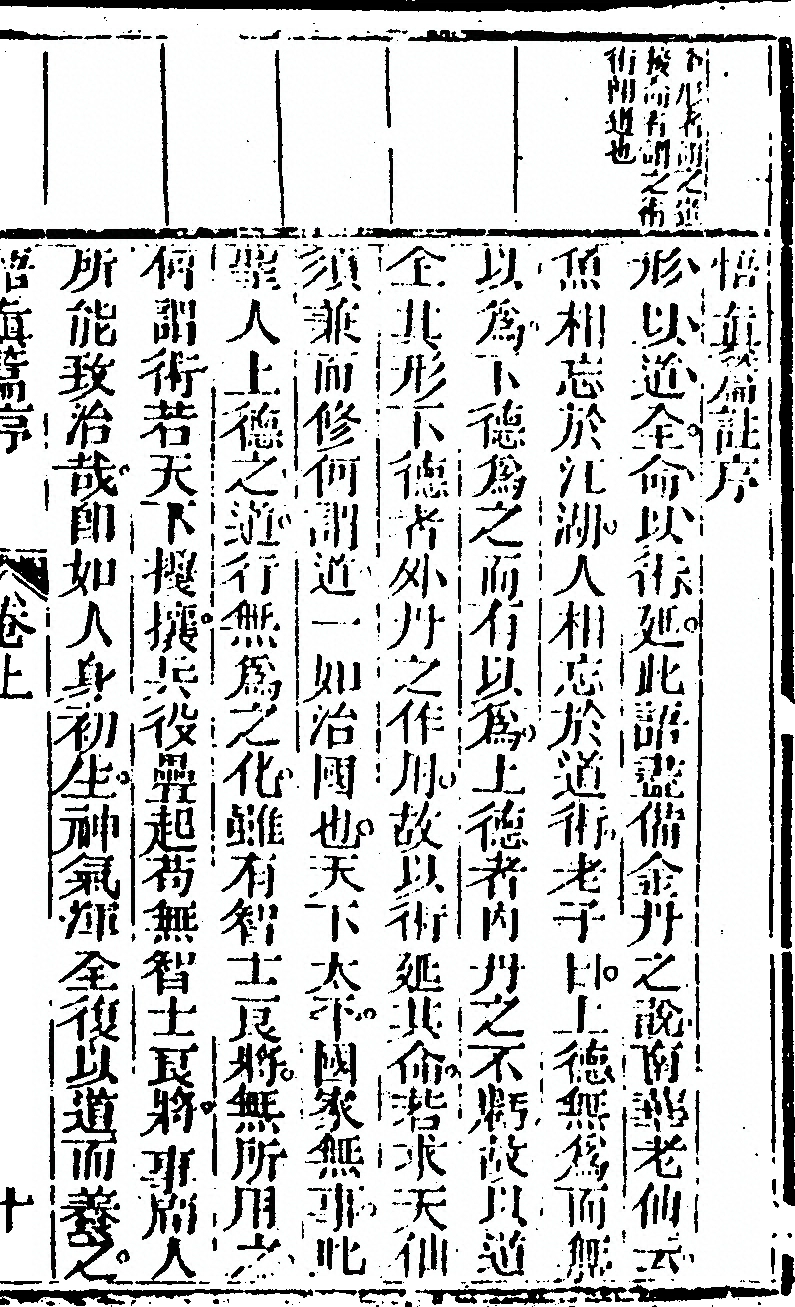 者謂之道
者謂之術
術附道也
悟真篇註序
形以道全命以術延此語盡備金丹之說南華老仙云
魚相忘於江湖人相忘於道術老子曰上德無爲而無
以爲下德爲之而有以爲上德者內丹之不虧故以道
全其形下德者外丹之作用故以術延其命若求天仙
須兼而修何謂道一如治國也天下太平國家無事此
聖人上德之道行無爲之化雖有智士良將無所用之
何謂術若天下擾攘兵役疊起苟無智士良將事屬人
所能致治哉卽如人身初生神氣渾全復以道而養之
悟眞篇序 卷上 十